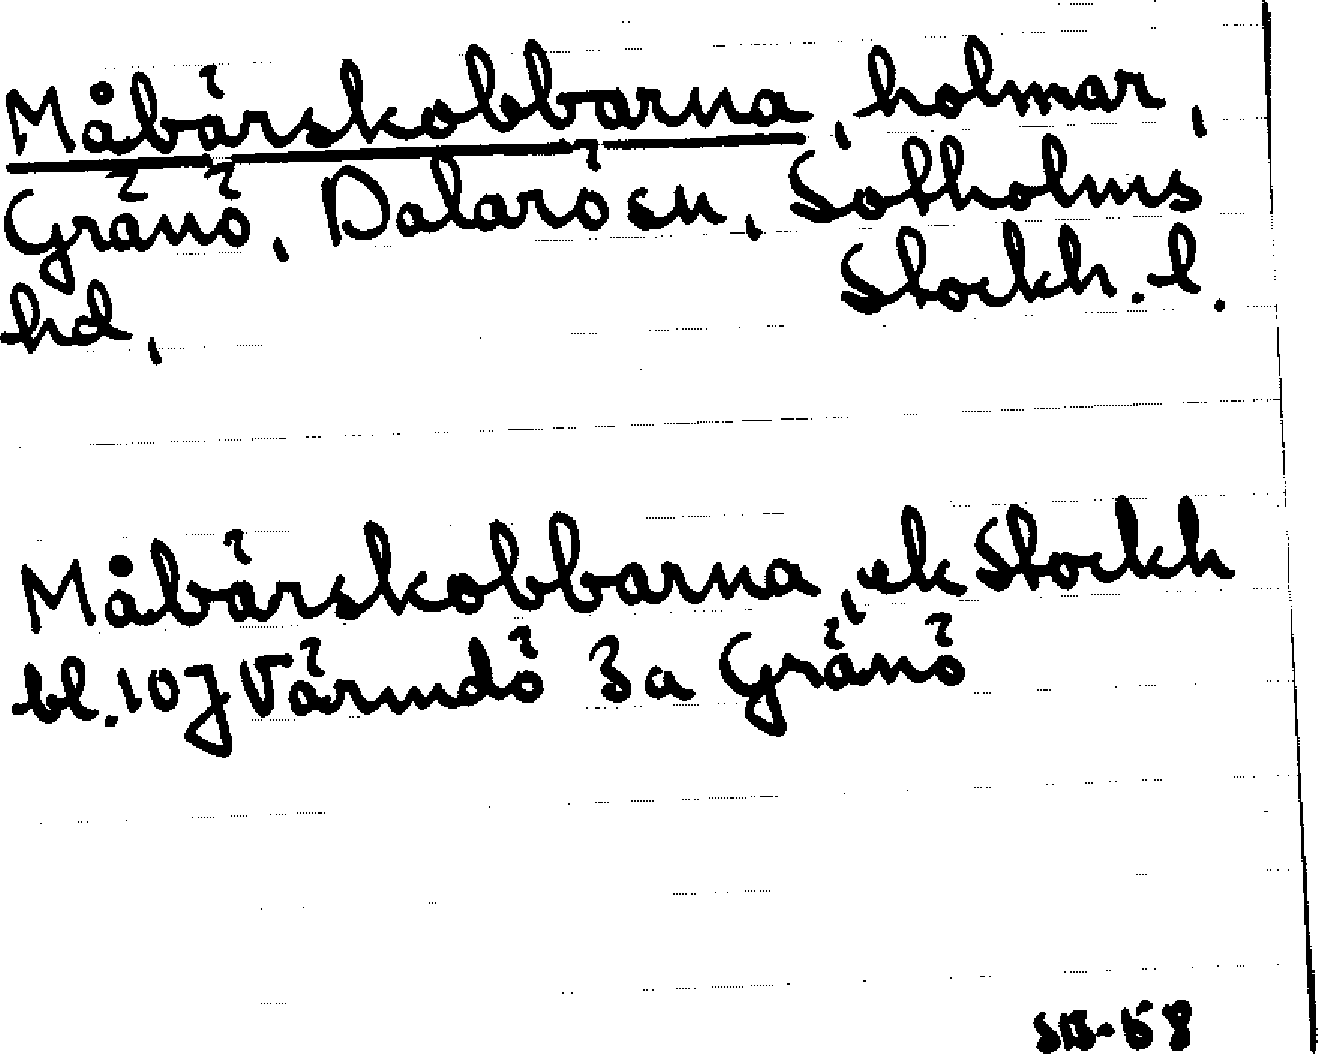 Måbärskobbarna, holmar,
Gränö, Dalarö sn, Sotholms
hd, Stockh. l.
Måbärskobbarna, ek Stockh
bl. 10J Värmdö 3a Gränö
SB-58